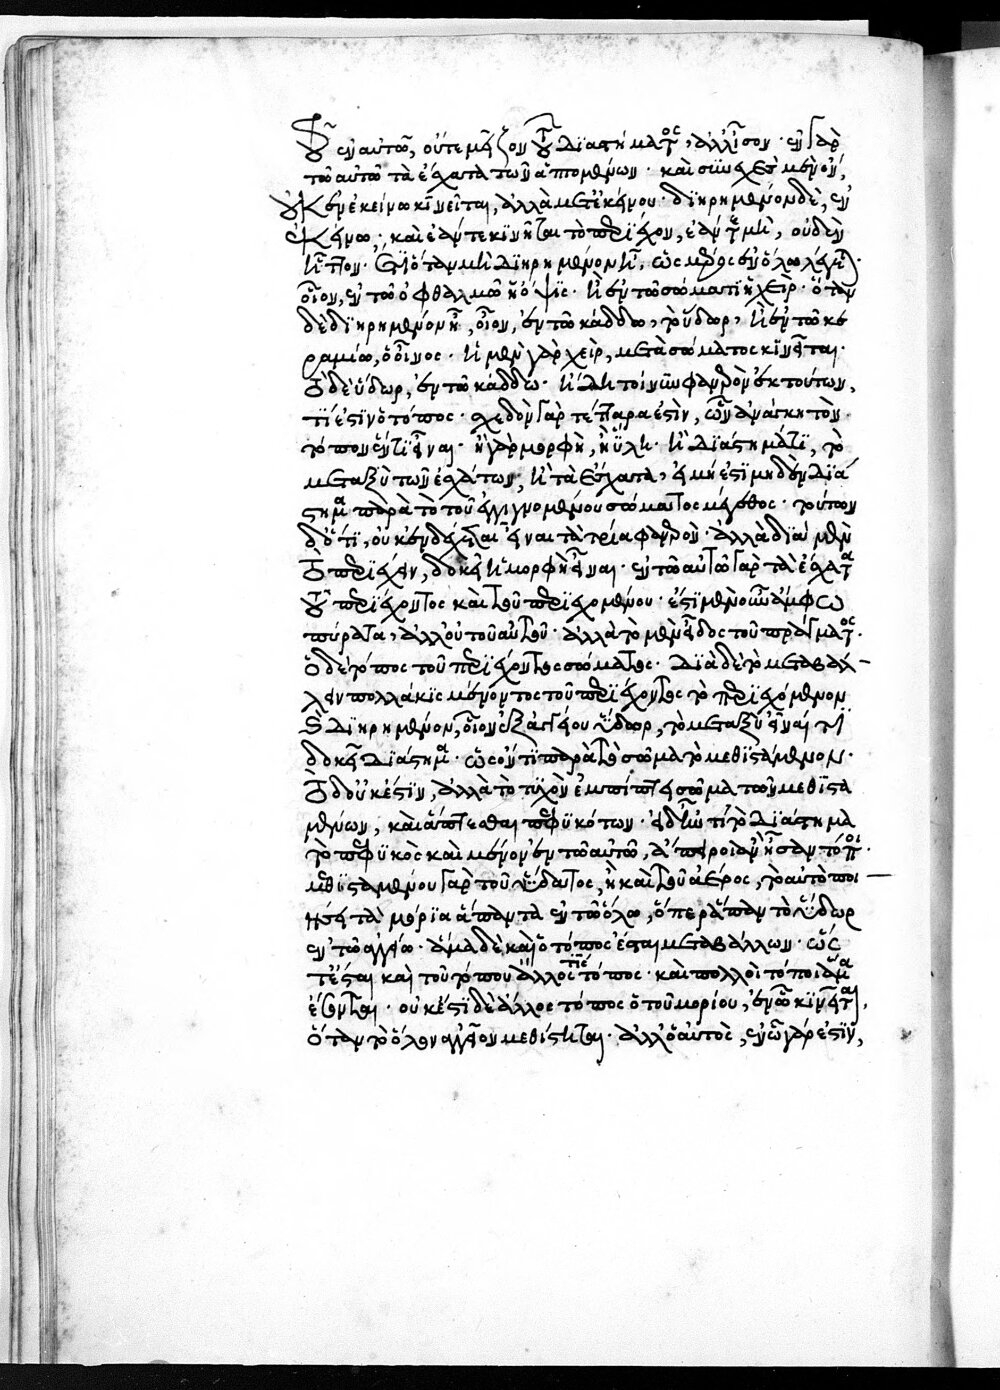 τοῦ ἐν αὐτῶ, οὔτε μεῖζον τοῦ διαστήματος, ἀλλ' ἴσον· ἐν γὰρ
τῶ αὐτῶ τὰ ἔσχατα τῶν ἁπτομένων· καὶ συνεχὲς μὲν ὂν,
οὐκ ἐν ἐκείνω κινεῖται, ἀλλὰ μετ' ἐκείνου· διηρημένον δὲ, ἐν
ἐκείνω· καὶ ἐάν τε κινῆται τὸ περιέχον, ἐάν τε μὴ, οὐδὲν
ἧττον. ἔτι ὅταν μὴ διηρημένον ἦ, ὡς μέρος ἐν ὅλω λέγεται·
οἷον, ἐν τῶ ὀφθαλμῶ ἡ ὄψις· ἢ ἐν τῶ σώματι ἡ χεὶρ· ὅταν
δὲ διηρημένον ἦ, οἷον, ἐν τῶ κάδδω, τὸ ὕδωρ, ἢ ἐν τῶ κε
ραμίω, ὁ οἶνος· ἡ μὲν γὰρ χεὶρ, μετὰ σώματος κινεῖται·
τὸ δὲ ὕδωρ, ἐν τῶ κάδδω· ἤδη τοίνυν φανερὸν ἐκ τούτων,
τί ἐστιν ὁ τόπος· σχεδὸν γὰρ τέτταρα ἐστὶν, ὧν ἀνάγκη τὸν
τόπον ἕν τι εἶναι· ἢ γὰρ μορφὴ, ἢ ὕλη· ἢ διάστημά τι, τὸ
μεταξὺ τῶν ἐσχάτων, ἢ τὰ ἔσχατα, εἰ μή ἐστι μηδὲν διά
στημα παρὰ τὸ τοῦ ἐγγιγνομένου σώματος μέγεθος· τούτων
δ' ὅτι, οὐκ ἐνδέχεται εἶναι τὰ τρία φανερὸν· ἀλλὰ διὰ μὲν
τὸ περιέχειν, δοκεῖ ἡ μορφὴ εἶναι· ἐν τῶ αὐτῶ γὰρ τὰ ἔσχατα
τοῦ περιέχοντος καὶ τοῦ περιεχομένου· ἔστι μὲν οὖν ἄμφω
πέρατα, ἀλλ' οὐ τοῦ αὐτοῦ· ἀλλὰ τὸ μὲν εἶδος τοῦ πράγματος·
ὁ δὲ τόπος τοῦ περιέχοντος σώματος· διὰ δὲ τὸ μεταβάλ-
λειν πολλάκις μένοντος τοῦ περιέχοντος τὸ περιεχόμενον
καὶ διηρημένον, οἷον ἐξ ἀγγείου ὕδωρ, τὸ μεταξὺ εἶναί τι
δοκεῖ διάστημα· ὡς ὄν τι παρὰ τὸ σῶμα τὸ μεθιστάμενον·
τὸ δ' οὐκ ἔστιν, ἀλλὰ τὸ τυχὸν ἐμπίπτει σῶμα τῶν μεθιστα
μένων, καὶ ἅπτεσθαι πεφυκότων· εἰ δ' ἦν τι τὸ διάστημα
τὸ πεφυκὸς καὶ μένον ἐν τῶ αὐτῶ, ἄπειροι ἂν ἦσαν τόποι·
μεθισταμένου γὰρ τοῦ ὕδατος, ἢ καὶ τοῦ ἀέρος, τὸ αὐτὸ ποι-
ήσει τὰ μόρια ἅπαντα ἐν τῶ ὅλω, ὅπερ ἅπαν τὸ ὕδωρ
ἐν τῶ ἀγγείω· ἅμα δὲ καὶ ὁ τόπος ἔσται μεταβάλλων· ὥς
τ' ἔσται καὶ τοῦ τόπου ἄλλος τις τόπος· καὶ πολλοὶ τόποι ἅμα
ἔσονται· οὐκ ἔστι δὲ ἄλλος τόπος ὁ τοῦ μορίου, ἐν ὧ κινεῖται,
ὅταν τὸ ὅλον ἀγγεῖον μεθίστηται· ἀλλ' ὁ αὐτὸς, ἐν ὧ γάρ ἐστιν,